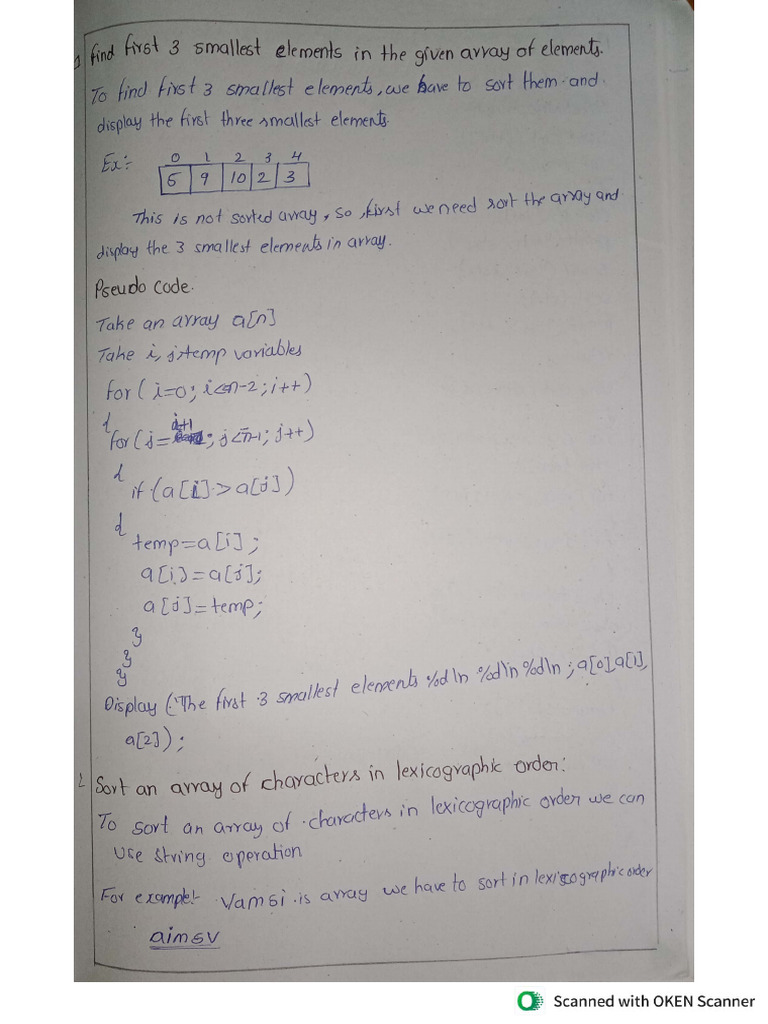 1 find first 3 smallest elements in the given array of elements.
To find first 3 smallest elements, we have to sort them and
display the first three smallest elements.
Ex:- 0 1 2 3 4
5 9 10 2 3
This is not sorted array, so first we need sort the array and
display the 3 smallest elements in array.
Pseudo code.
Take an array a[n]
Take i, j, temp variables
for( i=0; i<=n-2; i++)
{
for( j=i+1; j<=n-1; j++)
{
if (a[i]>a[j])
{
temp=a[i];
a[i]=a[j];
a[j]=temp;
}
}
}
Display (The first 3 smallest elements %d\n %d\n %d\n ; a[0],a[1],
a[2]);
2 Sort an array of characters in lexicographic order:
To sort an array of characters in lexicographic order we can
use string operation
For example:- Vamsi is array we have to sort in lexicographic order
aimsv
Scanned with OKEN Scanner